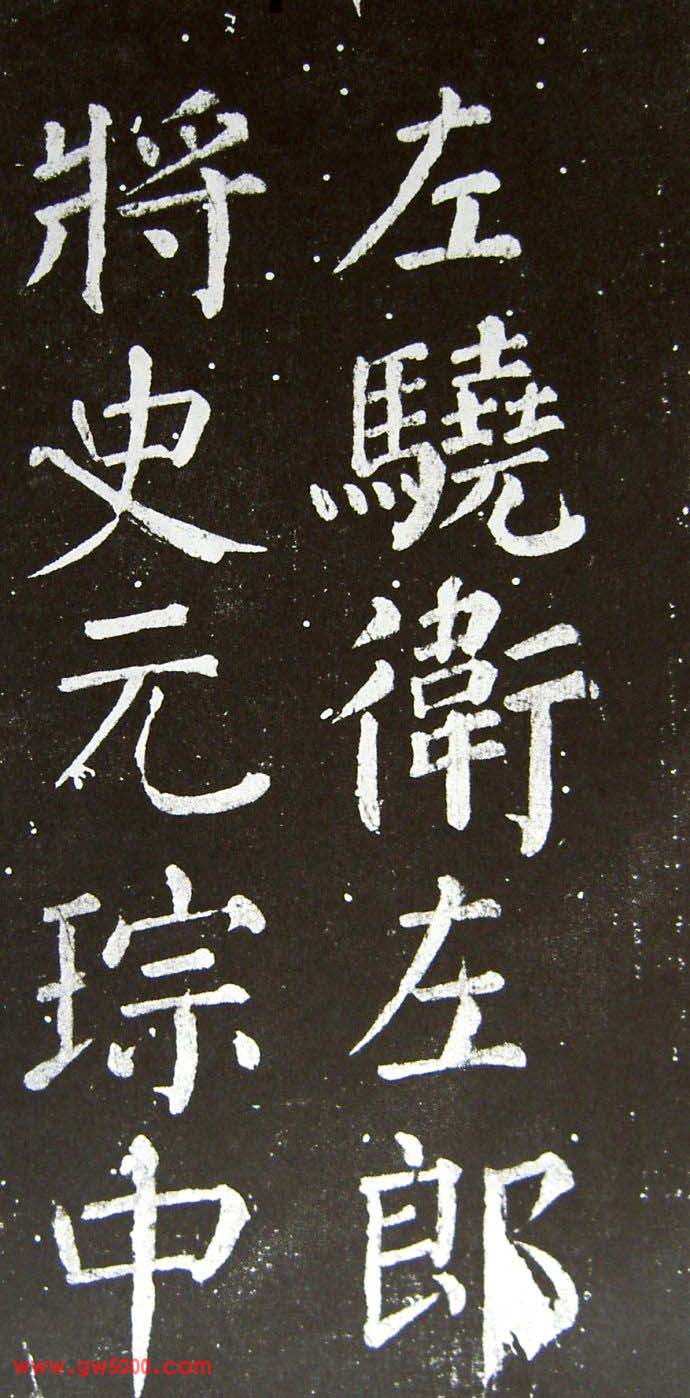 左驍衛左郎
將史元琮中
www.gw5000.com